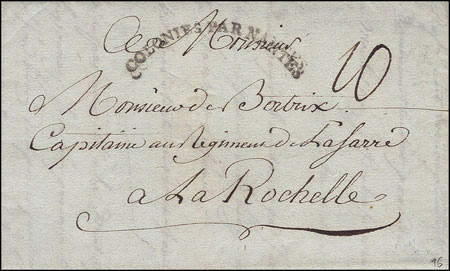 COLONIES PAR NANTES
A Monsieur
10
Monsieur de Bertrix
Capitaine au Regiment de La Sarre
a La Rochelle
96